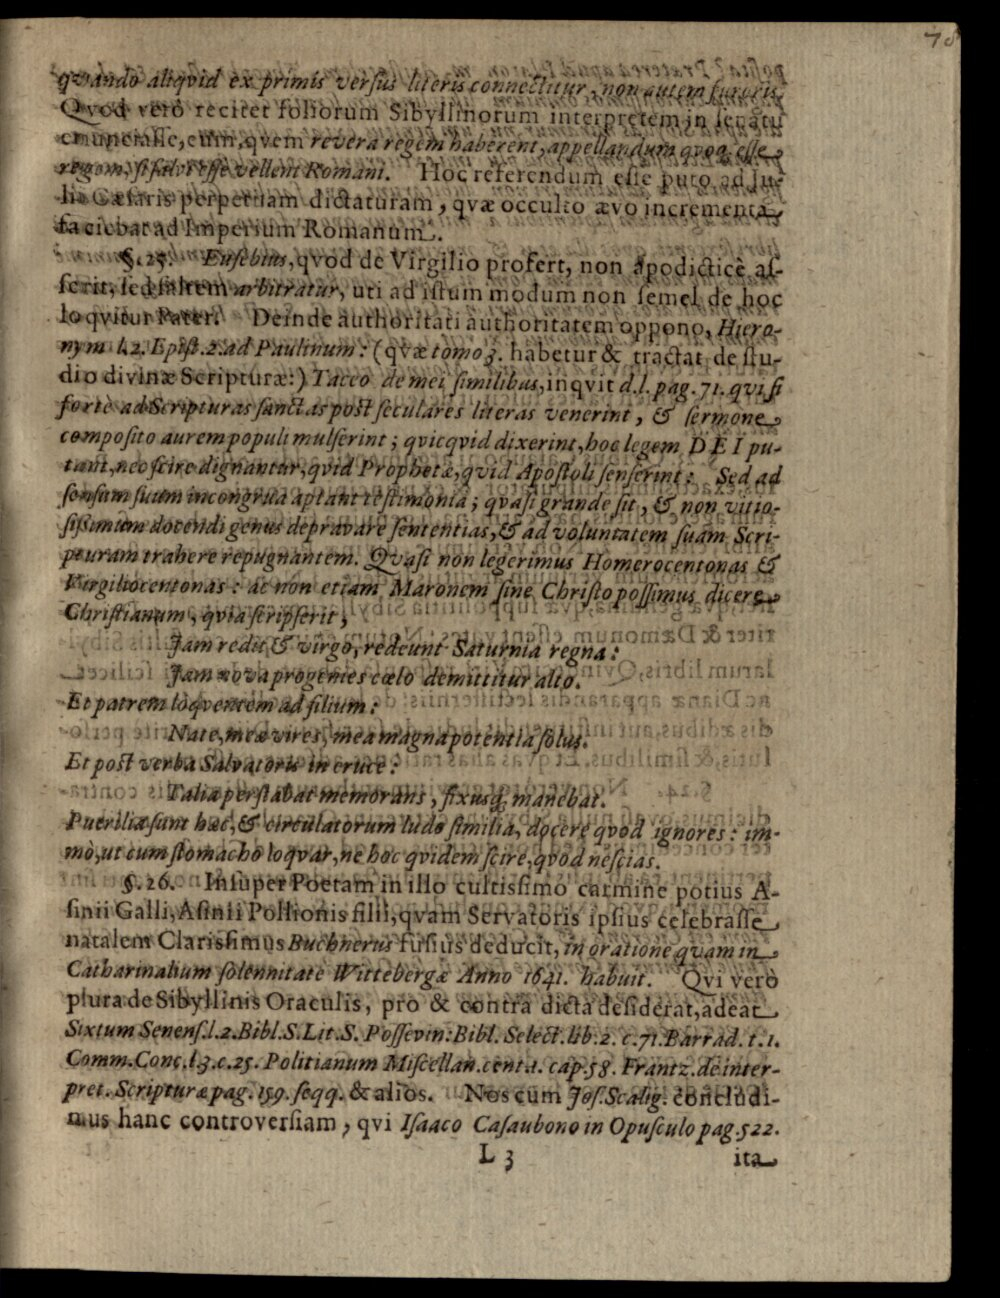 78
qvando aliqvid ex primis versus literis connectitur, non autem furoris.
Qvod verò recitet foliorum Sibyllinorum interpretem in senatu
enunciasse, eum, qvem revera regem haberent, appellandum quoq; esse
regem, si salvi esse vellent Romani. Hoc referendum esse puto ad Ju-
lii Cæsaris perpetuam dictaturam, qvæ occulto ævo incrementa
faciebat ad Imperium Romanum.
§. 25. Eusebius, qvod de Virgilio profert, non apodicticè as-
serit, sed saltem arbitratur, uti ad istum modum non semel de hoc
loqvitur Pater. Deinde authoritati authoritatem oppono, Hiero-
nym l. 2. Epist. 2. ad Paulinum: (qvæ tomo 3. habetur & tractat de stu-
dio divinæ Scripturæ:) Taceo de mei similibus, inqvit d. l. pag. 71. qui si
fortè ad Scripturas sanctas post seculares literas venerint, & sermone
composito aurem populi mulserint; qvicqvid dixerint, hoc legem DEI pu-
tant, nec scire dignantur, qvid Prophetæ, qvid Apostoli senserint: Sed ad
sensum suum incongrua aptant testimonia; qvasi grande sit, & non vitio-
sissimum docendi genus depravare sententias, & ad voluntatem suam Scri-
pturam trahere repugnantem. Qvasi non legerimus Homerocentonas &
Virgiliocentonas: ac non etiam Maronem sine Christo possimus dicere
Christianum, qvia scripserit,
Jam redit & virgo, redeunt Saturnia regna:
Jam nova progenies cœlo demittitur alto.
Et patrem loqventem ad filium:
Nate, meæ vires, mea magna potentia solus.
Et post verba Salvatoris in cruce:
Talia perstabat memorans, fixusq; manebat.
Puerilia sunt hæc, & circulatorum ludo similia, docere qvod ignores: im-
mò, ut cum stomacho loqvar, ne hoc qvidem scire, qvod nescias.
§. 26. Insuper Poetam in illo cultissimo carmine potius A-
sinii Galli, Asinii Pollionis filii, qvam Servatoris ipsius celebrasse
natalem Clarissimus Buchnerus fusius deducit, in oratione quam in
Catharinalium solennitate Wittebergæ Anno 1641. habuit. Qvi verò
plura de Sibyllinis Oraculis, pro & contrà dicta desiderat, adeat
Sixtum Senens. l. 2. Bibl. S. Lit. S. Possevin: Bibl. Select. lib. 2. c. 71. Barrad. t. 1.
Comm. Conc. l. 3. c. 25. Politianum Miscellan. cent. 1. cap. 58. Frantz. de inter-
pret. Scripturæ pag. 159. seqq. & alios. Nos cum Jos. Scalig. concludi-
mus hanc controversiam, qvi Isaaco Casaubono in Opusculo pag. 522.
L 3
ita